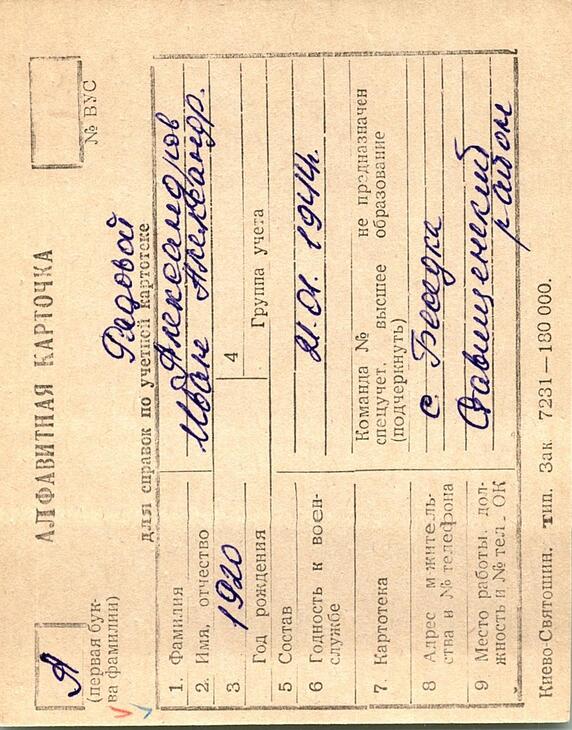 А
(первая бук-
ва фамилии)
АЛФАВИТНАЯ КАРТОЧКА
№ ВУС
Рядовой
для справок по учетной картотеке
1. Фамилия Александров
2. Имя, отчество Иван Александр.
3 Год рождения 1920
4 Группа учета
5 Состав
6 Годность к воен-
службе 21.01.1944г.
7. Картотека Команда № не предназначен
спецучет, высшее образование
(подчеркнуть)
8 Адрес м житель-
ства и № телефона с. Беседка
9 Место работы, дол-
жность и № тел. ОК Ставищенский
район
Киево-Святошин. тип. Зак 7231—180 000.